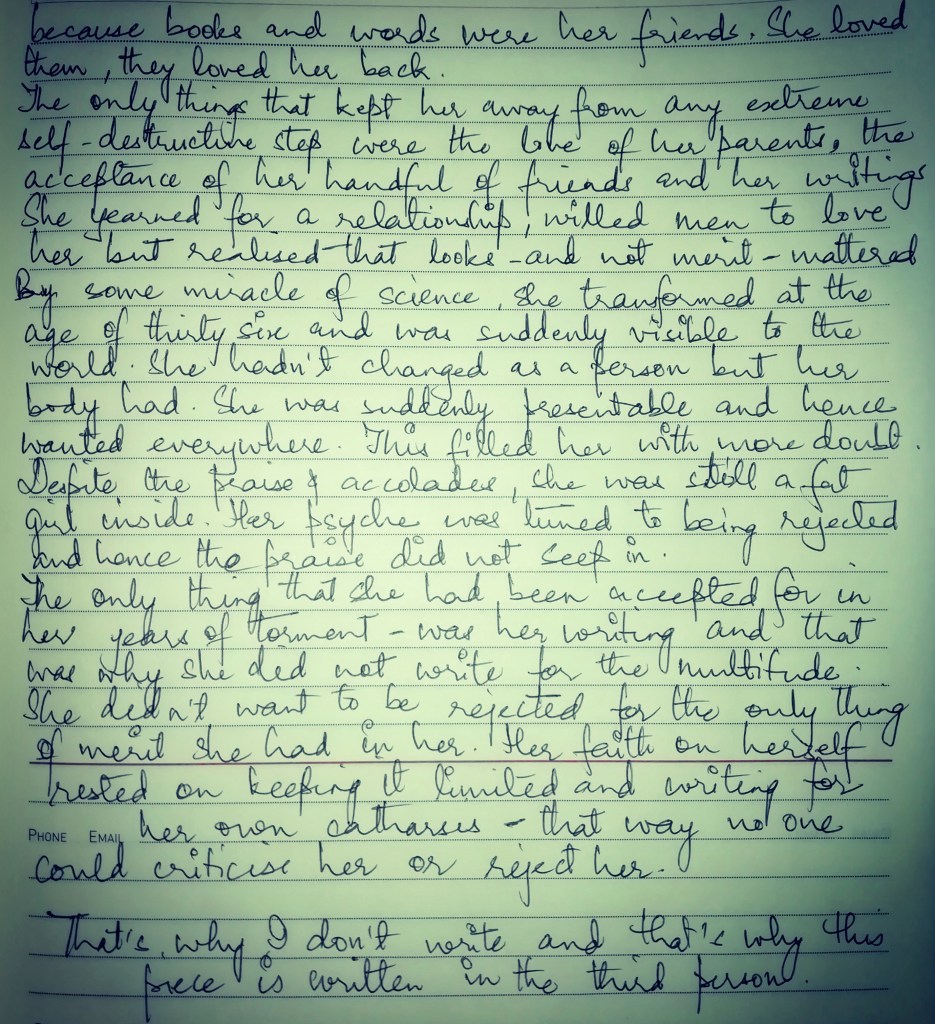 because books and words were her friends. She loved
them, they loved her back.
The only things that kept her away from any extreme
self-destructive step were the love of her parents, the
acceptance of her handful of friends and her writings
She yearned for a relationship, willed men to love
her but realised that looks - and not merit - mattered
By some miracle of science, she transformed at the
age of thirty six and was suddenly visible to the
world. She hadn't changed as a person but her
body had. She was suddenly presentable and hence
wanted everywhere. This filled her with more doubt.
Despite the praise & accolades, she was still a fat
girl inside. Her psyche was tuned to being rejected
and hence the praise did not seep in.
The only thing that she had been accepted for in
her years of torment - was her writing and that
was why she did not write for the multitude.
She didn't want to be rejected for the only thing
of merit she had in her. Her faith on herself
rested on keeping it limited and writing for
PHONE EMAIL her own catharsis - that way no one
could criticise her or reject her.
That's why I don't write and that's why this
piece is written in the third person.